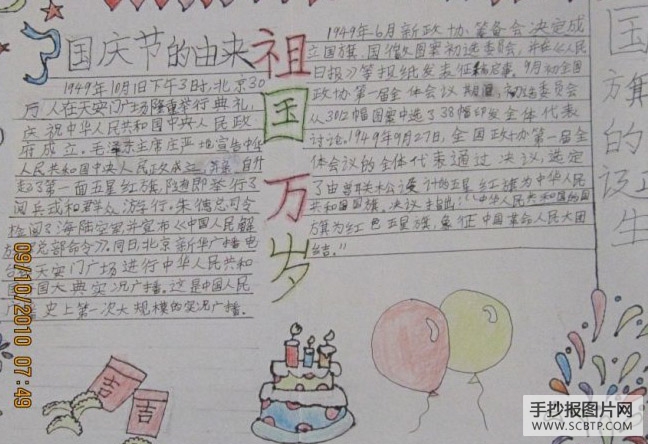 国庆节的由来
1949年10月1日下午3时，北京30
万人在天安门广场隆重举行典礼，
庆祝中华人民共和国中央人民政
府成立。毛泽东主席庄严地宣告中华
人民共和国中央人民政府成立，并亲自升
起了第一面五星红旗，随即举行了
阅兵式和群众游行。朱德总司令
检阅了海陆空军并宣布《中国人民解
放总部命令》。同日北京新华广播电
台天安门广场进行中华人民共和
国大典实况广播。这是中国人民
史上第一次大规模的实况广播。
祖国万岁
1949年6月新政协筹备会决定成
立国旗、国徽图案初选委员会，并在《人民
日报》等报纸发表征稿启事。9月初全国
政协第一届全体会议
从30幅图案中选了38幅印发全体代表
讨论。1949年9月27日，全国政协第一届全
体会议的全体代表通过决议，选定
了由曾联松设计的五星红旗为中华人民
共和国国旗，决议
旗为红色五星旗，象征中国革命人民大团
结。”
国旗的诞生
吉
吉
09/10/2010 07:49
手抄报图片网
WWW.SCBTP.COM